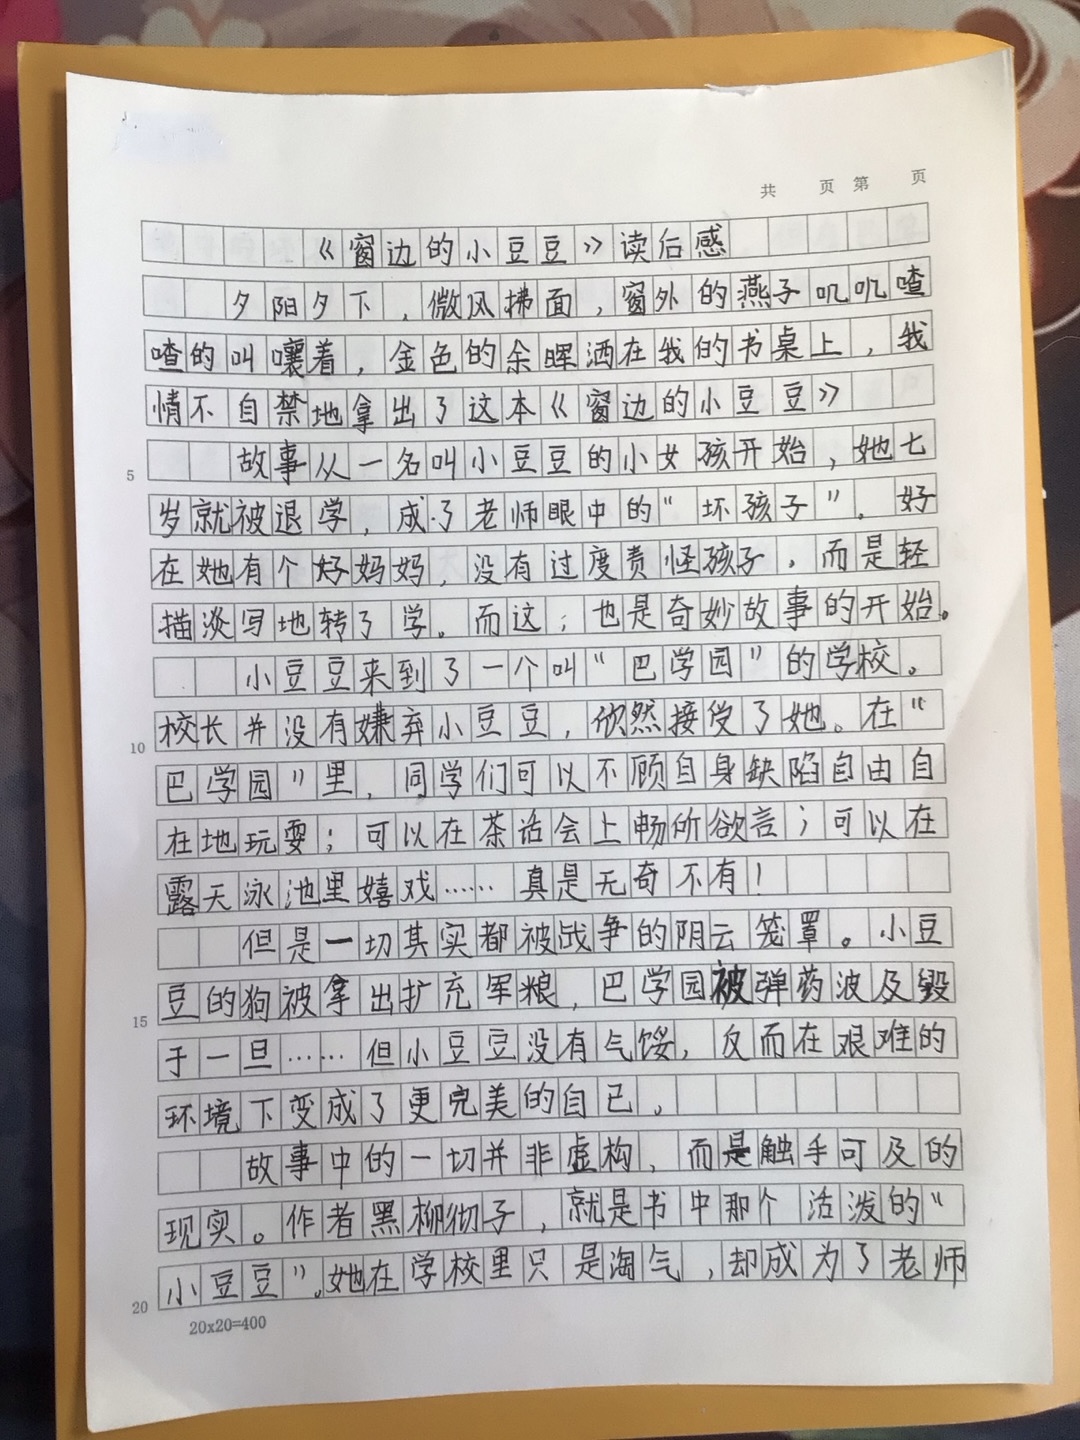 共 页 第 页
《窗边的小豆豆》读后感
夕阳夕下，微风拂面，窗外的燕子叽叽喳
喳的叫嚷着，金色的余晖洒在我的书桌上，我
情不自禁地拿出了这本《窗边的小豆豆》
5 故事从一名叫小豆豆的小女孩开始，她七
岁就被退学，成了老师眼中的“坏孩子”。好
在她有个好妈妈，没有过度责怪孩子，而是轻
描淡写地转了学。而这；也是奇妙故事的开始。
小豆豆来到了一个叫“巴学园”的学校。
10 校长并没有嫌弃小豆豆，欣然接受了她。在“
巴学园”里，同学们可以不顾自身缺陷自由自
在地玩耍；可以在茶话会上畅所欲言；可以在
露天泳池里嬉戏……真是无奇不有！
但是一切其实都被战争的阴云笼罩。小豆
15 豆的狗被拿出扩充军粮，巴学园被弹药波及毁
于一旦……但小豆豆没有气馁，反而在艰难的
环境下变成了更完美的自己。
故事中的一切并非虚构，而是触手可及的
现实。作者黑柳彻子，就是书中那个活泼的“
20 小豆豆”。她在学校里只是淘气，却成为了老师
20x20=400